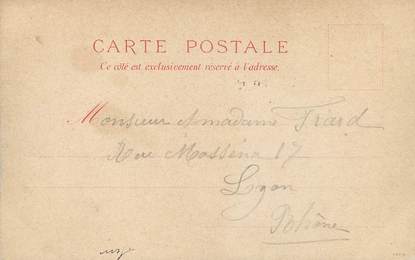 CARTE POSTALE
Ce côté est exclusivement réservé à l'adresse.
Monsieur et madame Friard
Rue Masséna 17
Lyon
Rhône